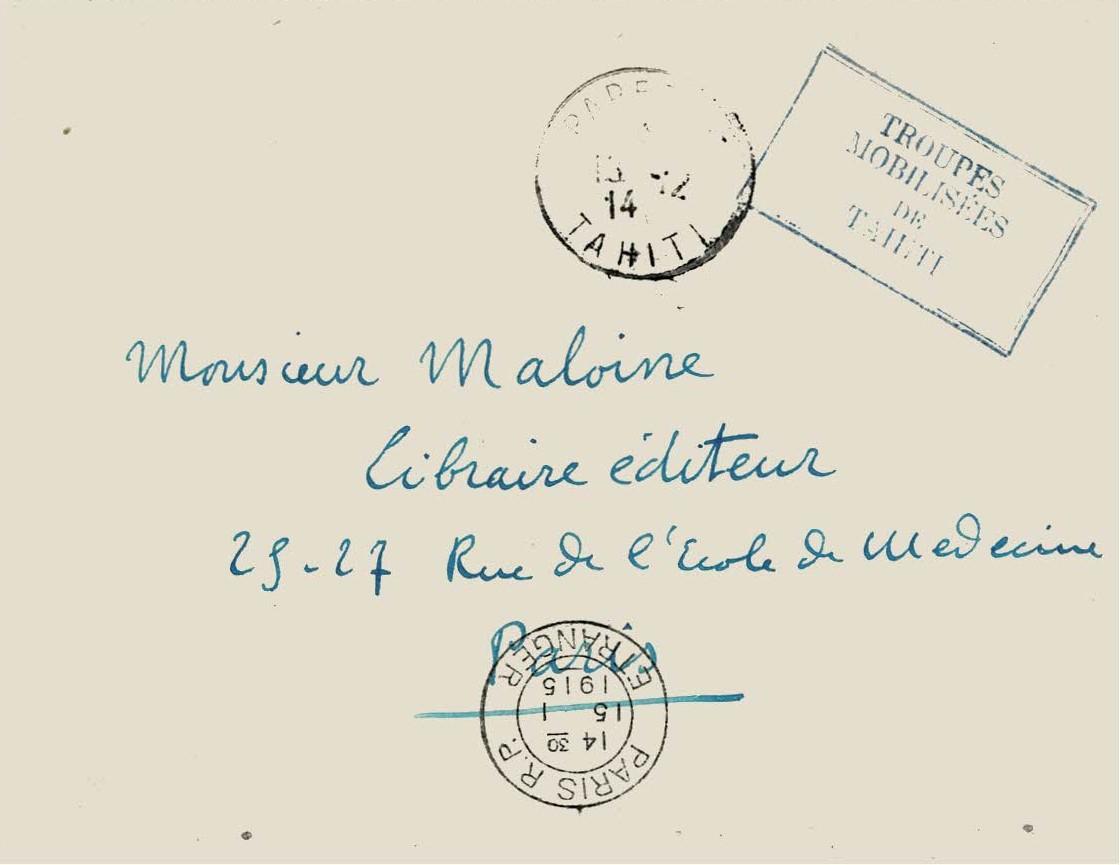 TAHITI
14
TROUPES
MOBILISÉES
DE
TAHITI
Monsieur Maloine
Libraire éditeur
25-27 Rue de l'Ecole de Medecine
Paris
PARIS R.P.
14 30
15 1
1915
ETRANGER